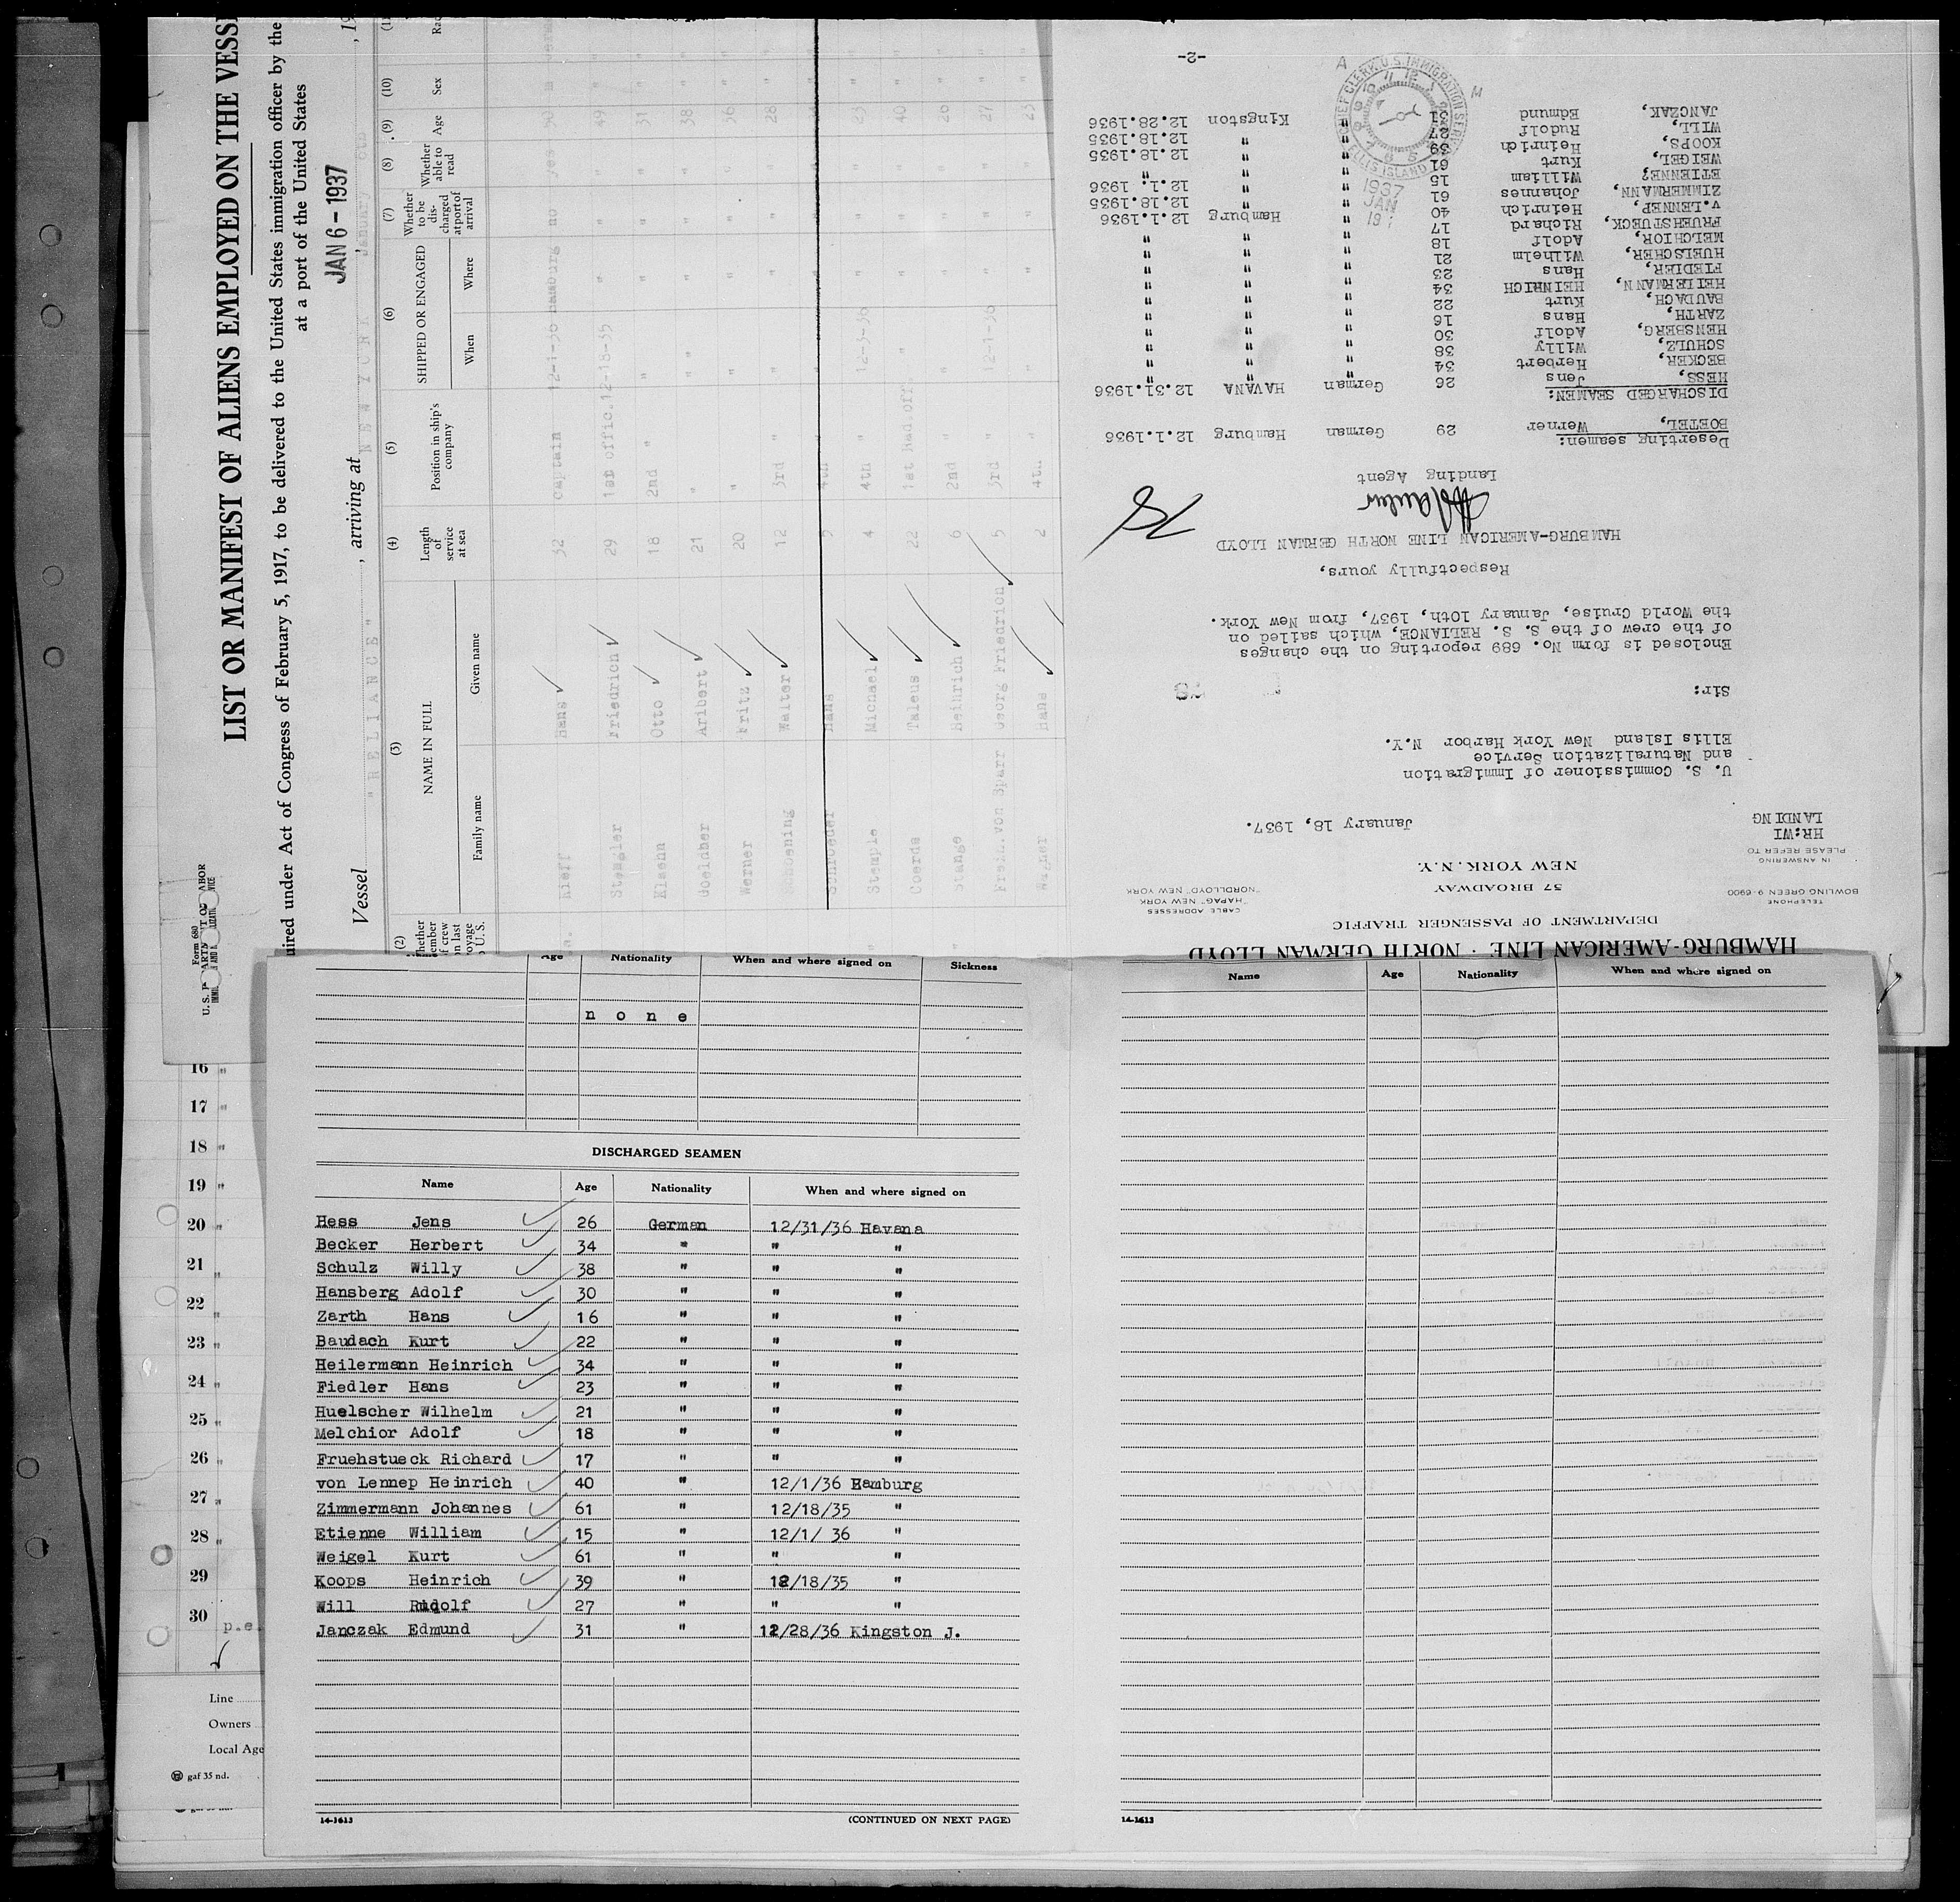 LIST OR MANIFEST OF ALIENS EMPLOYED ON THE VESS
uired under Act of Congress of February 5, 1917, to be delivered to the United States immigration officer by the
at a port of the United States
Form 680
JAN 6 - 1937
Vessel "RELIANCE", arriving at NEW YORK January 6th, 19
(2) (3) (4) (5) (6) (7) (8) (9) (10)
NAME IN FULL
SHIPPED OR ENGAGED
Family name Given name Length of service at sea Position in ship's company When Where Whether to be discharged at port of arrival Whether able to read Age Sex
Hans 32 captain 12-1-36 hamburg no yes 50 m
Friedrich 29 1st offic. 12-18-35 " " " 49 "
Klaehn Otto 18 2nd " " " " " 31 "
Aribert 21 " " " " " 38 "
Werner Fritz 20 " " " " " 36 "
Walter 12 3rd " " " " " 28 "
Schroeder Hans 5 4th " " "
Stemple Michael 4 4th " 12-3-36 " " " 23 "
Coerds Taleus 22 1st Rad.off. " " " " 40 "
Stange Heinrich 6 2nd " " " " " 26 "
Freih.von Sparr Georg Friedrich 5 3rd " 12-1-36 " " " 27 "
Hans 2 4th " " " " " 23 "
HAMBURG-AMERICAN LINE · NORTH GERMAN LLOYD
DEPARTMENT OF PASSENGER TRAFFIC
57 BROADWAY
NEW YORK. N.Y.
TELEPHONE
BOWLING GREEN 9-6900
CABLE ADDRESSES
"HAPAG" NEW YORK
"NORDLLOYD" NEW YORK
IN ANSWERING
PLEASE REFER TO
HR:WI
LANDING
January 18, 1937.
U. S. Commissioner of Immigration
and Naturalization Service
Ellis Island New York Harbor N.Y.
Sir:
Enclosed is form No. 689 reporting on the changes
of the crew of the S. S. RELIANCE, which sailed on
the World Cruise, January 10th, 1937, from New York.
Respectfully yours,
HAMBURG-AMERICAN LINE NORTH GERMAN LLOYD
Landing Agent
Deserting seamen:
BOETEL, Werner 29 German Hamburg 12.1.1936
DISCHARGED SEAMEN:
HESS, Jens 26 German HAVANA 12.31.1936
BECKER, Herbert 34 " " "
SCHULZ, Willy 38 " " "
HENSBERG, Adolf 30 " " "
ZARTH, Hans 16 " " "
BAUDACH, Kurt 22 " " "
HEILERMANN, HEINRICH 34 " " "
FIEDLER, Hans 23 " " "
HUELSCHER, Wilhelm 21 " " "
MELCHIOR, Adolf 18 " " "
FRUEHSTUECK, Richard 17 " " "
v.LENNEP, Heinrich 40 " Hamburg 12.1.1936
ZIMMERMANN, Johannes 61 " " 12.18.1935
ETIENNE, William 15 " " 12.1. 1936
WEIGEL, Kurt 61 " " "
KOOPS, Heinrich 39 " " 12.18.1935
WILL, Rudolf 27 " " 12.18.1935
JANCZAK, Edmund 31 " Kingston 12.28.1936
CHIEF CLERK, U.S. IMMIGRATION SERVICE
ELLIS ISLAND
1937
JAN
-2-
16 "
17 "
18 "
19 "
20 "
21 "
22 "
23 "
24 "
25 "
26 "
27 "
28 "
29 "
30 p.e.
Line
Owners
Local Age
gaf 35 nd.
Age Nationality When and where signed on Sickness
none
DISCHARGED SEAMEN
Name Age Nationality When and where signed on
Hess Jens 26 German 12/31/36 Havana
Becker Herbert 34 " " "
Schulz Willy 38 " " "
Hansberg Adolf 30 " " "
Zarth Hans 16 " " "
Baudach Kurt 22 " " "
Heilermann Heinrich 34 " " "
Fiedler Hans 23 " " "
Huelscher Wilhelm 21 " " "
Melchior Adolf 18 " " "
Fruehstueck Richard 17 " " "
von Lennep Heinrich 40 " 12/1/36 Hamburg
Zimmermann Johannes 61 " 12/18/35 "
Etienne William 15 " 12/1/ 36 "
Weigel Kurt 61 " " "
Koops Heinrich 39 " 12/18/35 "
Will Rudolf 27 " " "
Janczak Edmund 31 " 12/28/36 Kingston J.
14-1613 (CONTINUED ON NEXT PAGE)
Name Age Nationality When and where signed on
14-1613